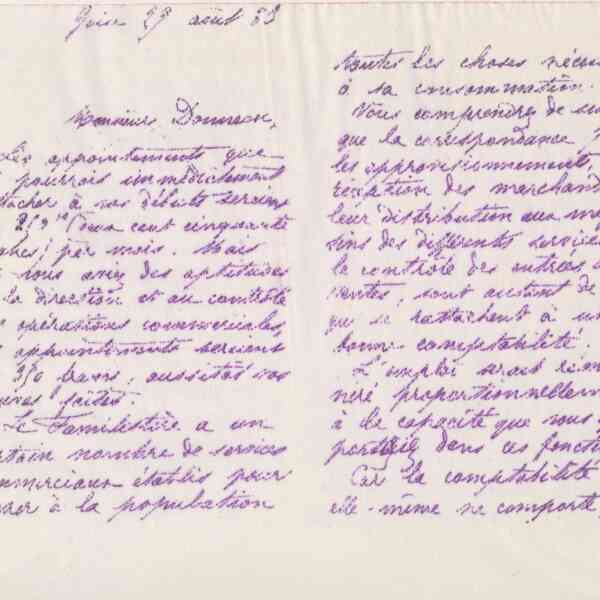 Guise 29 août 83
Monsieur Donneau,
Les appointements que
pourrais immédiatement
attacher à vos débuts seraient
250 f (Deux cent cinquante
francs) par mois. Mais
vous avez des aptitudes
la direction et au contrôle
opérations commerciales,
appointements seraient
350 francs, aussitôt vos
preuves faites.
Le Familistère a un
certain nombre de services
commerciaux établis pour
à la population
toutes les choses néces
à sa consommation.
Vous comprendrez de sui
que la correspondance,
les approvisionnements,
réception des marchand
leur distribution aux ma
sins des différents services
le contrôle des entrées
ventes, sont autant de
qui se rattachent à un
bonne comptabilité.
L'emploi serait rému
néré proportionnellem
à la capacité que vous
porterez dans ces fonct
Car la comptabilité
elle-même ne comporte